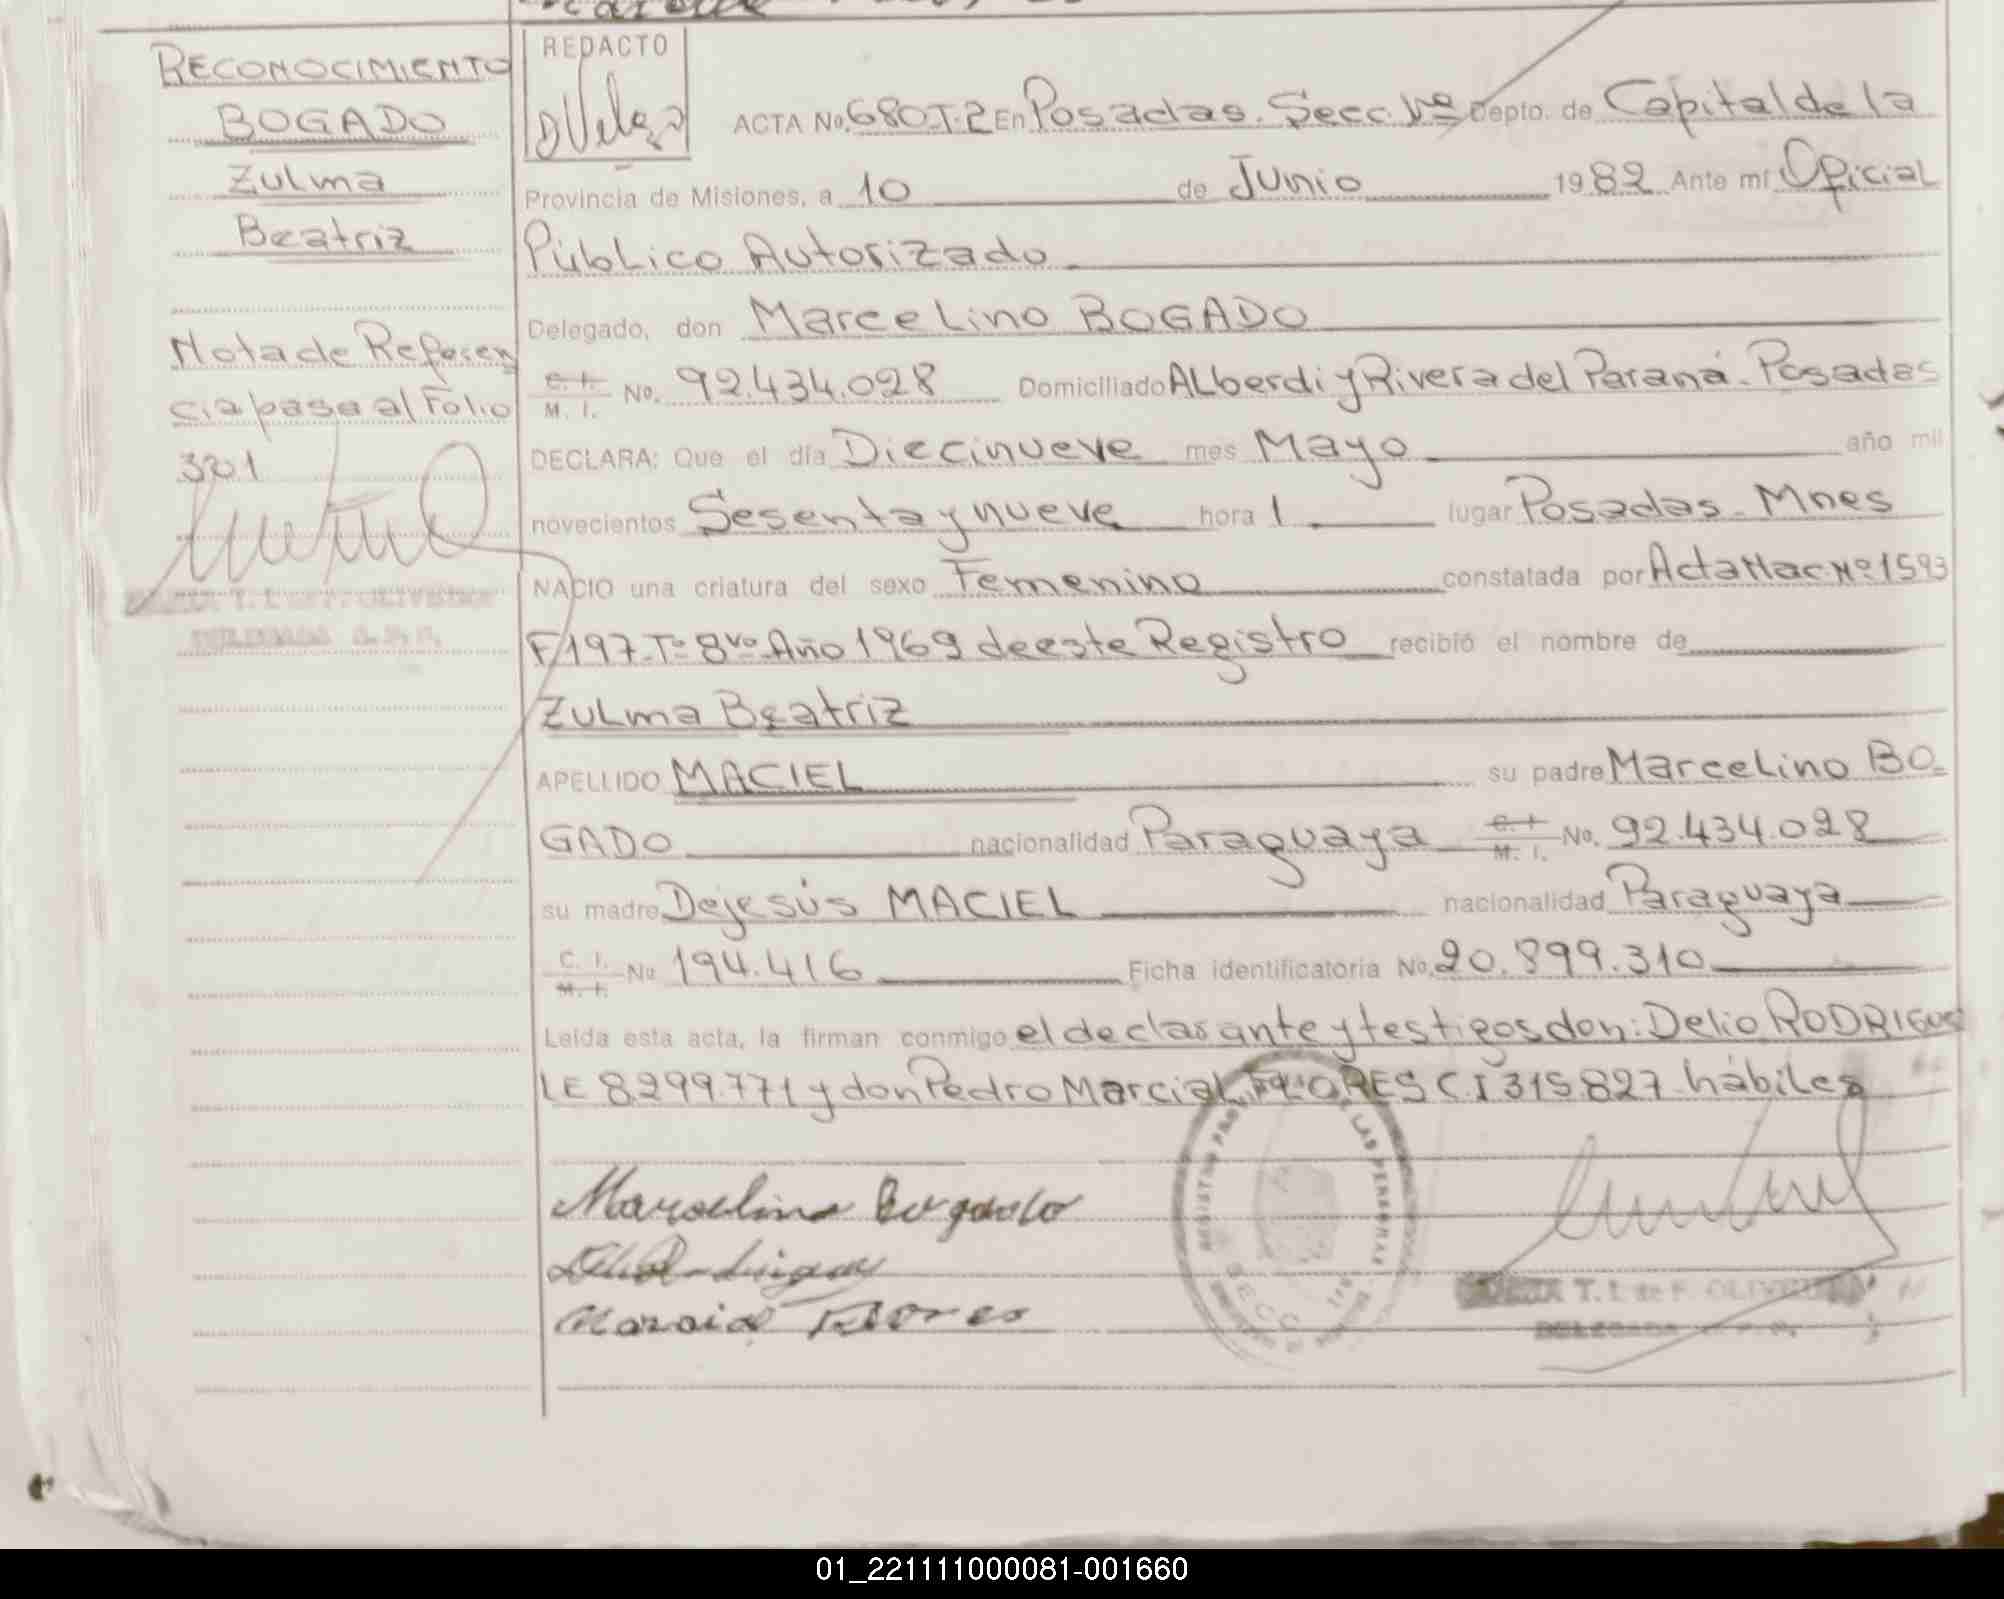 RECONOCIMIENTO
BOGADO
Zulma
Beatriz
Nota de Referen
cia pasa al Folio
301
REDACTO
ACTA No. 680 T.2 En Posadas. Secc. 1ª Depto. de Capital de la
Provincia de Misiones, a 10 de Junio 1982 Ante mí Oficial
Público Autorizado
Delegado, don Marcelino BOGADO
C. I. M. I. No. 92.434.028 Domiciliado Alberdi y Rivera del Paraná. Posadas
DECLARA: Que el día Diecinueve mes Mayo año mil
novecientos Sesenta y nueve hora 1 lugar Posadas - Mnes
NACIO una criatura del sexo Femenino constatada por Acta Nac. Nº 1593
F/197-Tº 8vo Año 1969 de este Registro recibió el nombre de
Zulma Beatriz
APELLIDO MACIEL su padre Marcelino BO-
GADO nacionalidad Paraguaya C. I. M. I. No. 92.434.028
su madre Dejesús MACIEL nacionalidad Paraguaya
C. I. M. I. No 194.416 Ficha identificatoria No. 20.899.310
Leída esta acta, la firman conmigo el declarante y testigos don: Delio RODRIGUEZ
LE 8.299.771 y don Pedro Marcial FLORES C.I 315.827 hábiles
Marcelino Bogado
Delio Rodriguez
Marcial Flores
T. I. de F. OLIVEIRA
DELEGADA
01_221111000081-001660